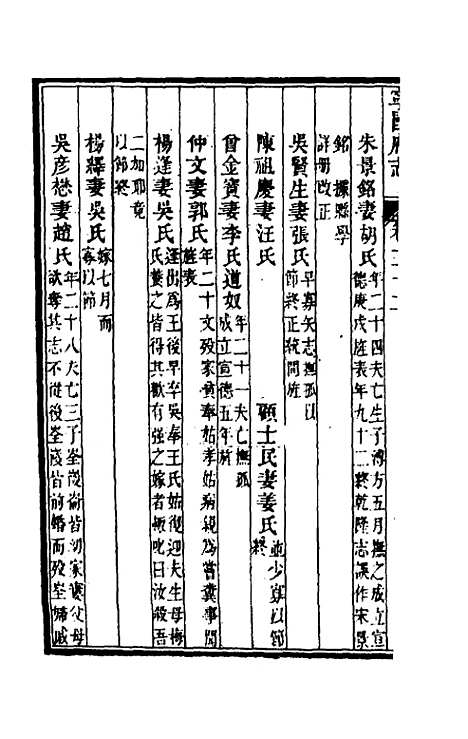 寧國府志 卷三十二
朱景銘妻胡氏 年二十四夫亡生子溥方五月撫之成立宣
德庚戌旌表年九十二終乾隆志誤作宋景
銘據縣學
詳冊改正
吳賢生妻張氏 早寡矢志撫孤以
節終正統間旌
陳祖慶妻汪氏 碩士民妻姜氏 並少寡以節
終
曾金寶妻李氏道奴 年二十一夫亡撫孤
成立宣德五年旌
仲文妻郭氏 年二十文歿家貧奉姑孝姑病親為嘗糞事聞
旌表
楊逢妻吳氏 逢出為王後早卒吳奉王氏姑復迎夫生母梅
氏養之皆得其歡有强之嫁者輒叱曰汝殺吾
二加耶竟
以節終
楊繹妻吳氏 嫁七月而
寡以節
吳彥懋妻趙氏 年二十八夫亡三子
欲奪其志不從後皆前婚而歿